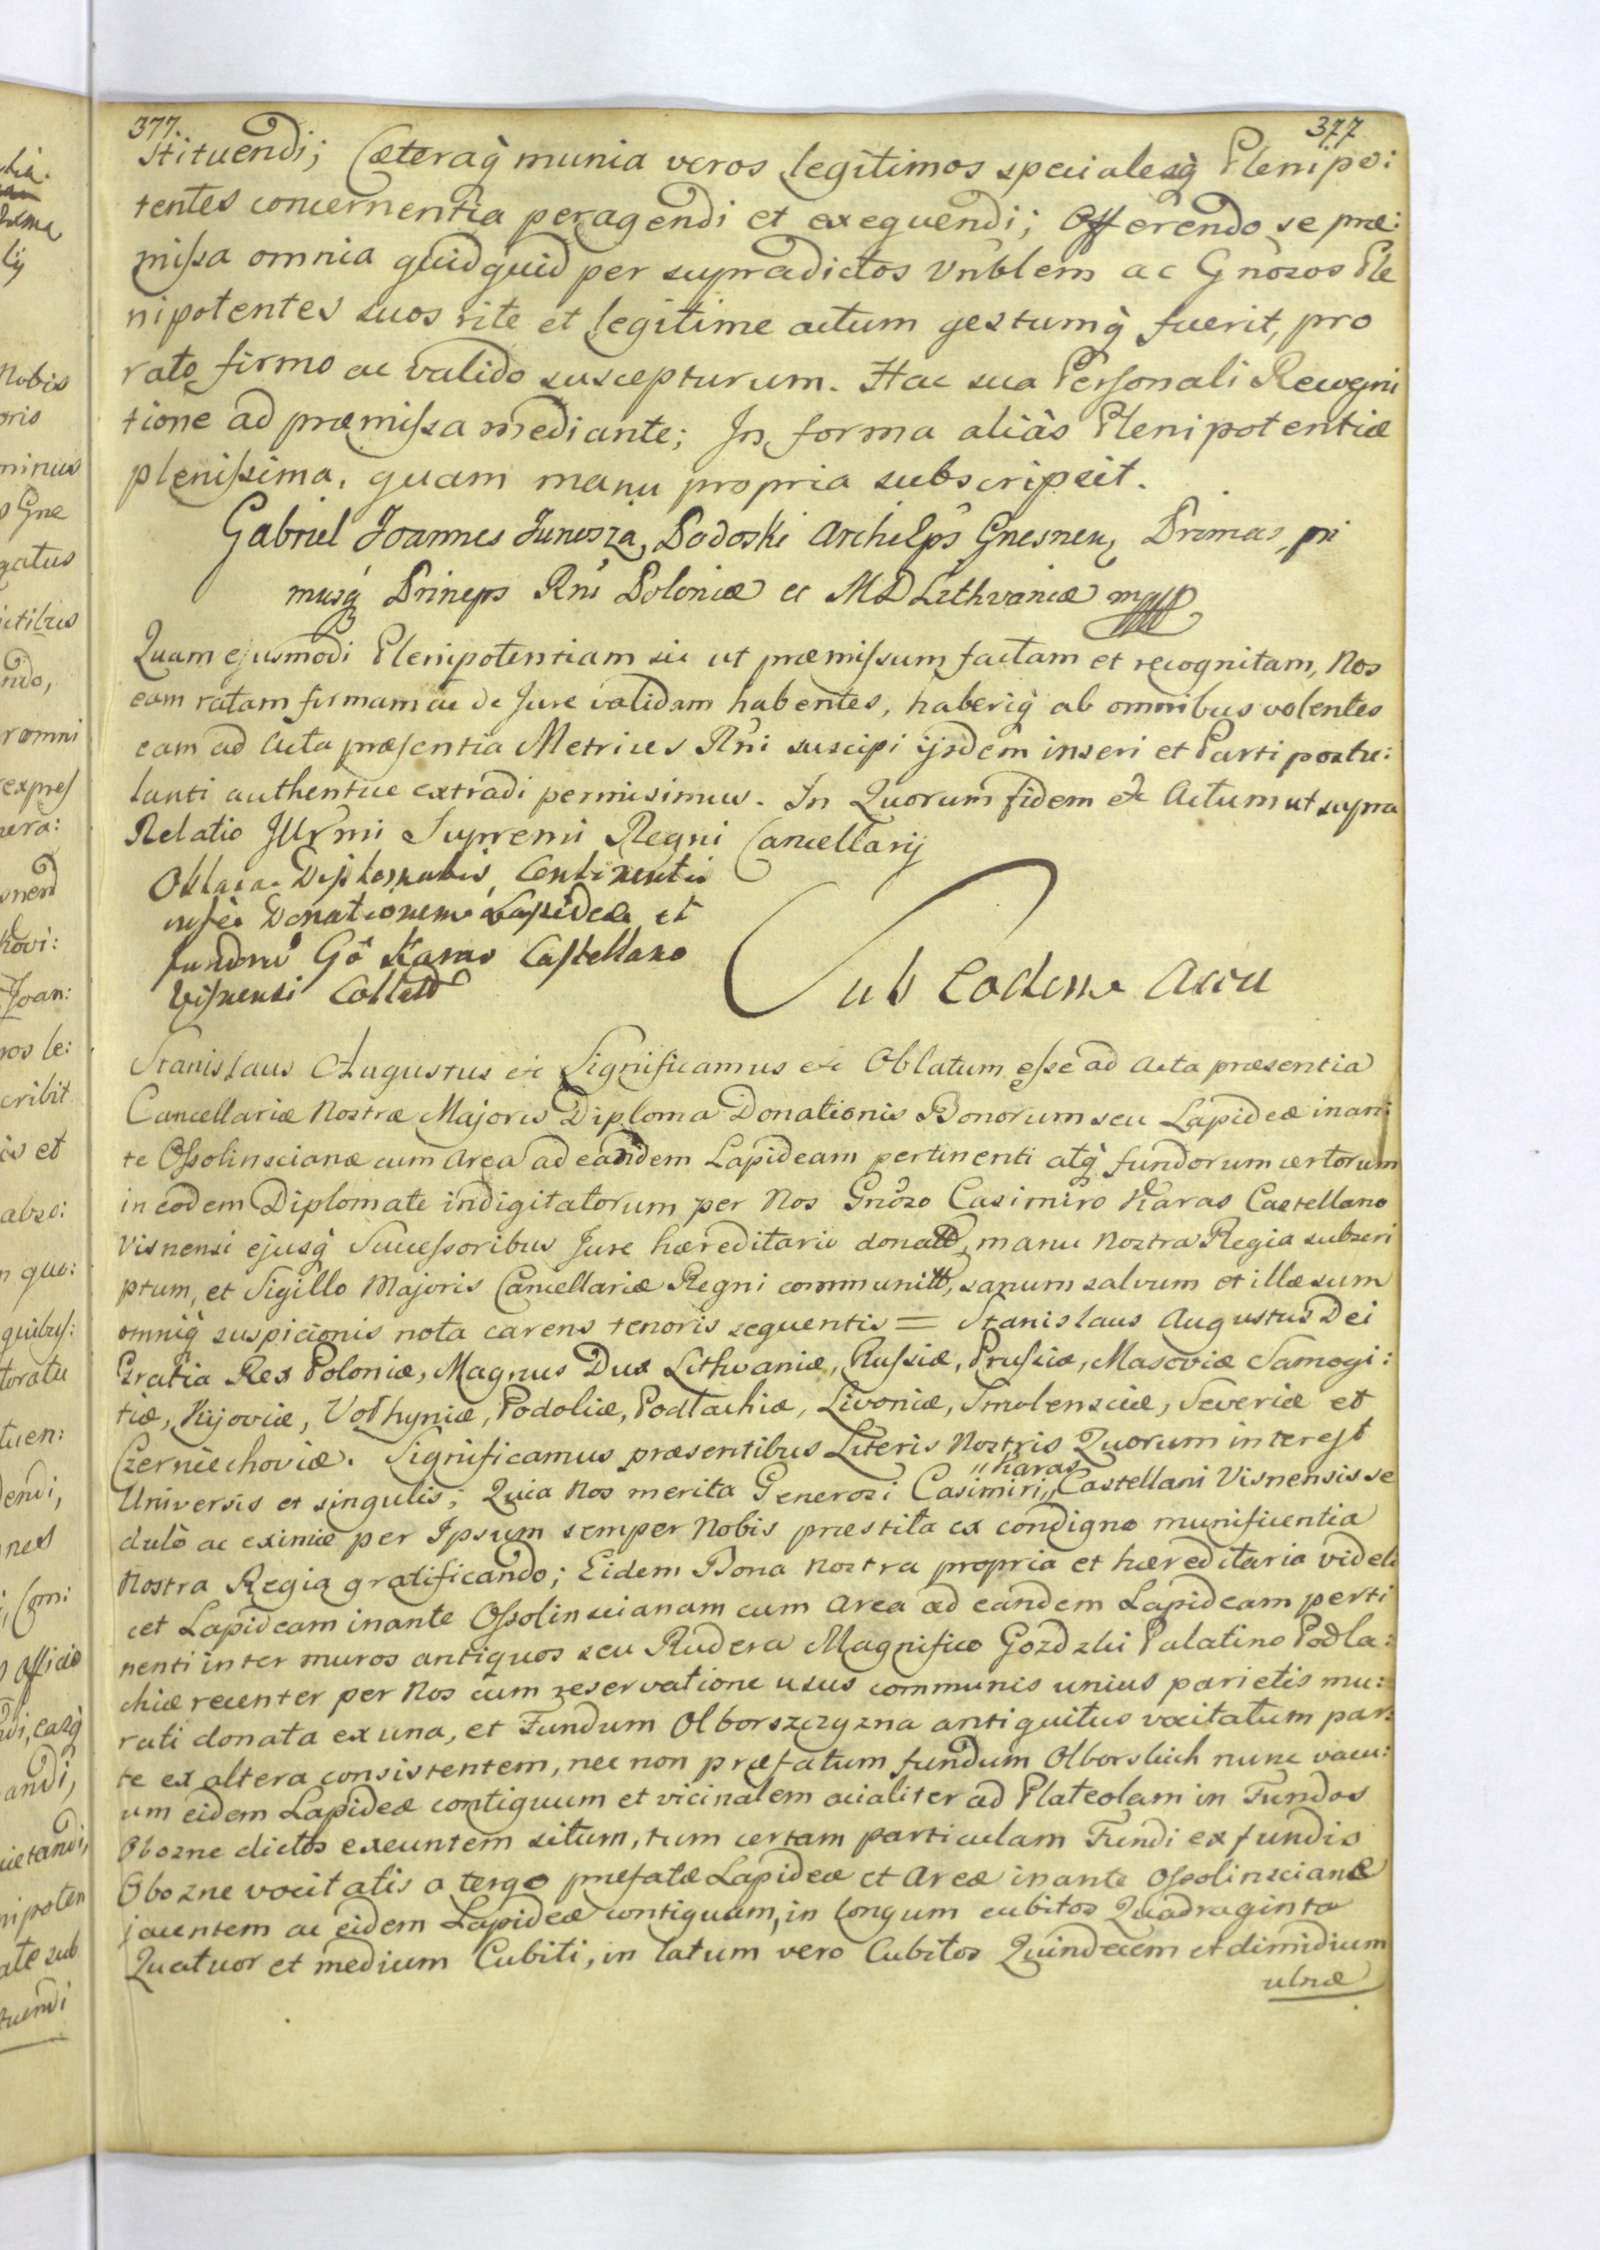 377. 377
stituendi; Cæteraq̀ munia veros legitimos specialesq̀ Plenipo:
tentes concernentia peragendi et exequendi; Offerendo se præ:
missa omnia quidquid per supradictos Vnblem ac Gnôsos Ple
nipotentes suos rite et legitime actum gestumq̀ fuerit, pro
rato firmo ac valido suscepturum. Hac sua Personali Recogni
tione ad præmissa mediante; In forma aliàs Plenipotentiæ
plenissima, quam manu propria subscripsit.
Gabriel Joannes Junosza, Podoski ArchiEps Gnesnen, Primas, pri
musq́ Princps Rni Poloniæ et MD Lithvaniæ mpp
Quam ejusmodi Plenipotentiam sic ut præmissum factam et recognitam, Nos
eam ratam firmam ac de Jure validam habentes, haberiq̀ ab omnibus volentes
eam ad Acta præsentia Metrices Rñi suscipi ijsdem inseri et Parti postu:
lanti authentice extradi permisimus. In Quorum fidem etc Actum ut supra
Relatio Jllrmi Supremi Regni Cancellarij
Oblata Diplomatis Continentis
in se Donationem Lapideæ et
fundorũ Gô Karas Castellano
Visnensi Collatõ
Sub Eodem Actu
Stanislaus Augustus etc Significamus etc Oblatum esse ad Acta præsentia
Cancellariæ Nostræ Majoris Diploma Donationis Bonorum seu Lapideæ inan:
te Ossolinscianæ cum Area ad eandem Lapideam pertinenti atq̀ fundorum certorum
in eodem Diplomate indigitatorum per Nos Gnôso Casimiro Karas Castellano
Visnensi ejusq̀ Successoribus Jure hæreditario donatt, manu Nostra Regia subscri
ptum, et Sigillo Majoris Cancellariæ Regni communitt, sanum salvum et illæsum
omniq̀ suspicionis nota carens tenoris sequentis = Stanislaus Augustus Dei
Gratia Rex Poloniæ, Magnus Dux Lithvaniæ, Russiæ, Prussiæ, Masoviæ Samogi:
tiæ, Kijoviæ, Volhyniæ, Podoliæ, Podlachiæ, Livoniæ, Smolensciæ, Severiæ et
Czerniechoviæ. Significamus præsentibus Literis Nostris Quorum interest
"Karas
Universis et singulis; Quia Nos merita Generosi Casimiri,, Castellani Visnensis se
dulò ac eximie per Ipsum semper Nobis præstita ex condigno munificentia
Nostra Regia gratificando; Eidem Bona Nostra propria et hæreditaria videli
cet Lapideam inante Ossolinscianam cum Area ad eandem Lapideam perti
nenti inter muros antiquos seu Rudera Magnifico Gozdzki Palatino Podla:
chiæ recenter per Nos cum reservatione usus communis unius parietis mu:
rati donata ex una, et Fundum Olborszczyzna antiquitus vocitatum par:
te ex altera consistentem, nec non præfatum fundum Olborskich nunc vacu:
um eidem Lapideæ contiguum et vicinalem acialiter ad Plateolam in Fundos
Obozne dictos exeuntem situm, tum certam particulam Fundi ex fundis
Obozne vocitatis a tergo præfatæ Lapideæ et Areæ inante Ossolinscianæ
jacentem ac eidem Lapideæ contiguam, in longum cubitos Quadraginta
Quatuor et medium Cubiti, in latum vero Cubitos Quindecem et dimidium
ulnæ